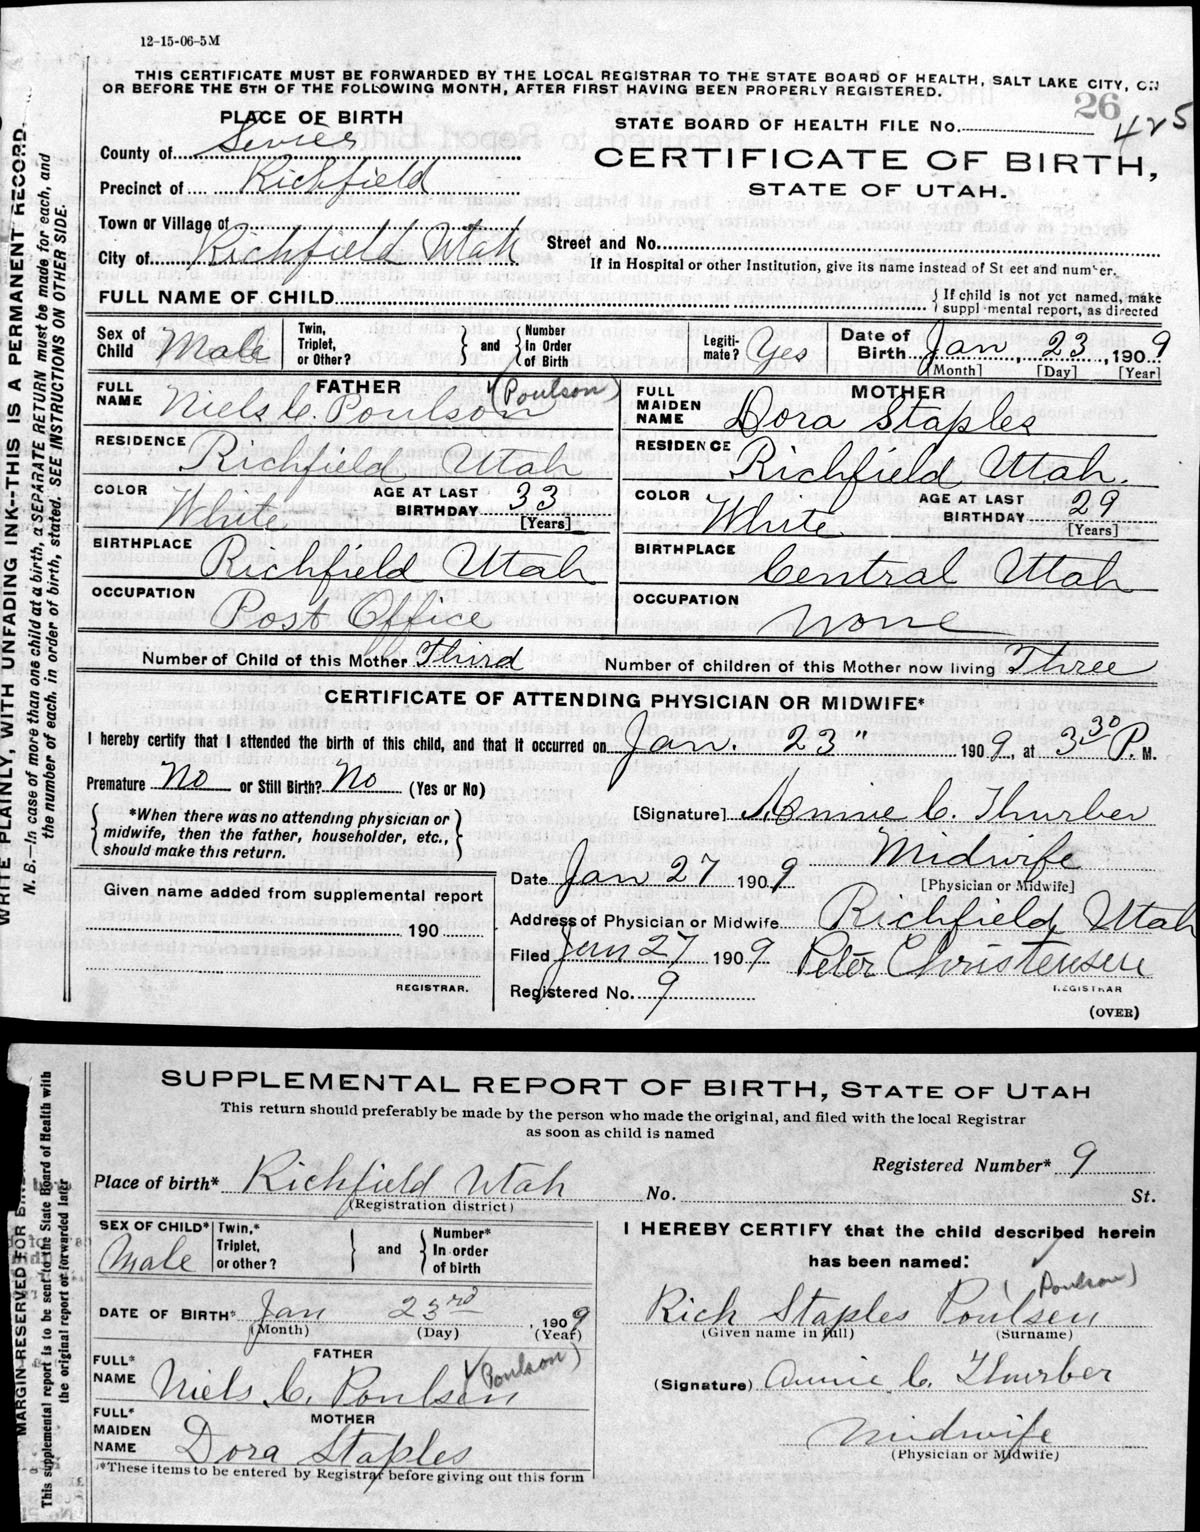 12-15-06-5M
THIS CERTIFICATE MUST BE FORWARDED BY THE LOCAL REGISTRAR TO THE STATE BOARD OF HEALTH, SALT LAKE CITY, ON
OR BEFORE THE 5TH OF THE FOLLOWING MONTH, AFTER FIRST HAVING BEEN PROPERLY REGISTERED.
26
425
PLACE OF BIRTH
STATE BOARD OF HEALTH FILE No.
County of Sevier
CERTIFICATE OF BIRTH,
STATE OF UTAH.
Precinct of Richfield
Town or Village of
City of Richfield Utah
Street and No.
If in Hospital or other Institution, give its name instead of St eet and number.
FULL NAME OF CHILD
{ If child is not yet named, make
suppl mental report, as directed
Sex of Child Male
Twin, Triplet, or Other? } and { Number In Order of Birth
Legiti-mate? Yes
Date of Birth Jan, 23, 1909
[Month] [Day] [Year]
FATHER
FULL NAME Niels C. Poulson (Poulson)
RESIDENCE Richfield Utah
COLOR White AGE AT LAST BIRTHDAY 33 [Years]
BIRTHPLACE Richfield Utah
OCCUPATION Post Office
MOTHER
FULL MAIDEN NAME Dora Staples
RESIDENCE Richfield Utah.
COLOR White AGE AT LAST BIRTHDAY 29 [Years]
BIRTHPLACE Central Utah
OCCUPATION none
Number of Child of this Mother Third Number of children of this Mother now living Three
CERTIFICATE OF ATTENDING PHYSICIAN OR MIDWIFE*
I hereby certify that I attended the birth of this child, and that it occurred on Jan. 23" 1909, at 3 30 P. M.
Premature No or Still Birth? No (Yes or No)
{ *When there was no attending physician or
midwife, then the father, householder, etc., }
should make this return.
[Signature] Annie C. Thurber
Midwife
[Physician or Midwife]
Date Jan 27 1909
Address of Physician or Midwife Richfield, Utah
Filed Jan 27 1909 Peter Christensen
REGISTRAR
Registered No. 9
(OVER)
Given name added from supplemental report
190
REGISTRAR.
WRITE PLAINLY, WITH UNFADING INK--THIS IS A PERMANENT RECORD.
N. B.—In case of more than one child at a birth, a SEPARATE RETURN must be made for each, and
the number of each, in order of birth, stated. SEE INSTRUCTIONS ON OTHER SIDE.
SUPPLEMENTAL REPORT OF BIRTH, STATE OF UTAH
This return should preferably be made by the person who made the original, and filed with the local Registrar
as soon as child is named
Registered Number* 9
Place of birth* Richfield Utah No. St.
(Registration district)
SEX OF CHILD* Male
Twin,* Triplet, or other? } and { Number* In order of birth
DATE OF BIRTH* Jan 23rd, 1909
(Month) (Day) (Year)
FATHER
FULL* NAME Niels C. Poulsen (Poulson)
MOTHER
FULL* MAIDEN NAME Dora Staples
*These items to be entered by Registrar before giving out this form
I HEREBY CERTIFY that the child described herein
has been named:
(Poulson)
Rich Staples Poulsen
(Given name in full) (Surname)
(Signature) Annie C. Thurber
Midwife
(Physician or Midwife)
MARGIN RESERVED FOR
This supplemental report is to be sent to the State Board of Health with
the original report or forwarded later